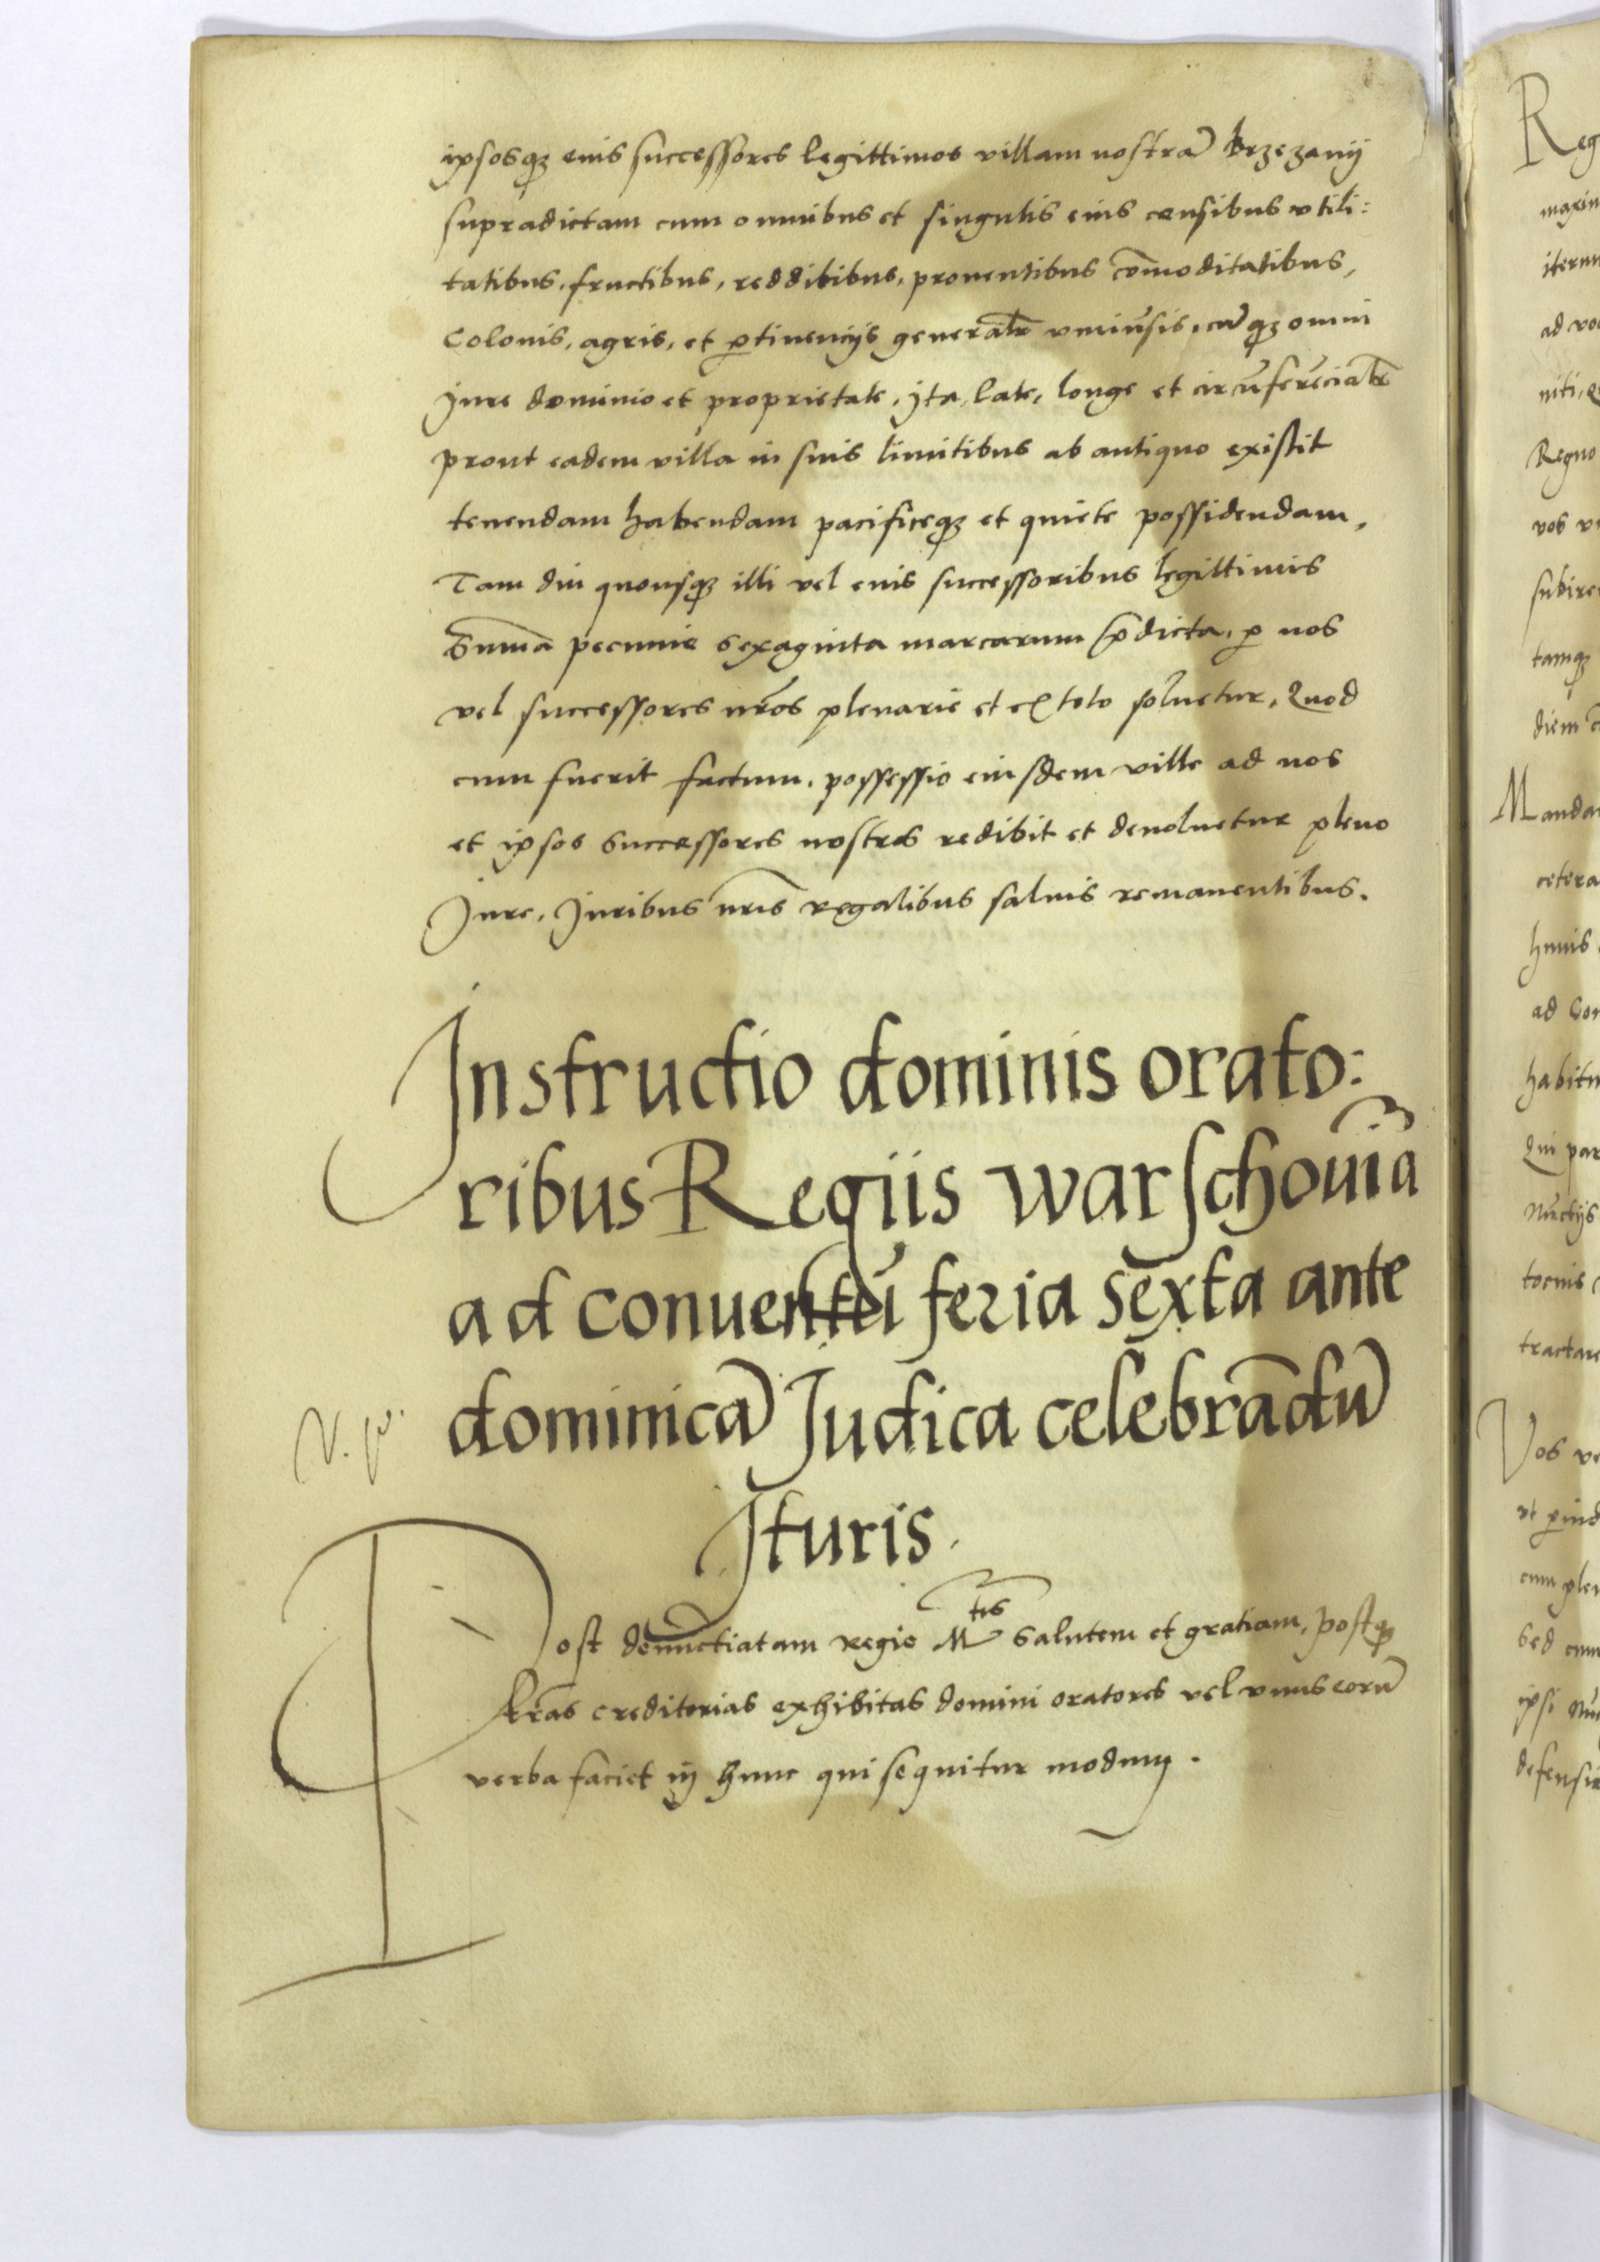 ipsosqꝫ eius successores legittimos villam nostrā brzezanij
supradictam cum omnibus et singulis eius censibus vtili:
tatibus, fructibus, reddibibus, prouentibus cōmoditatibus,
Colonis, agris, et ꝑtinencijs generalr̄ vniuēsis, cūqꝫ omni
Jure dominio et proprietate, Jta, late, longe et circūferēcialr̄
prout eadem villa in suis limitibus ab antiquo existit
tenendam habendam pacificeqꝫ et quiete possidendam,
Tam diu quousqꝫ illi vel euis successoribus legittimis
Sum̄a pecunie sexaginta marcarum p̄dicta, ꝑ nos
vel successores nr̄os plenarie et ex toto soluetur, Quod
cum fuerit factum, possessio eiusdem ville ad nos
et ipsos successores nostros redibit et deuoluetur pleno
Jure, Juribus nr̄is regalibus saluis remanentibus.
Instructio dominis orato:
ribus Regiis warschouiā
ad conuentū feria sexta ante
dominicā Judica celebrādū
Jturis.
Post denūctiatam regie M^tis salutem et gratiam, postqꝫ
lr̄as creditorias exhibitas domini oratores vel vnus eorū
verba faciet in hunc qui sequitur modum.
Reg
maxim
iterum
ad vo
niti, q
Regno
vos v
subire
tamqꝫ
diem
Manda
cetera
huius
ad Con
habitu
Qui par
Nūctijs
tocius
tractare
Vos ve
vt ꝑind
cum plen
Sed cum
ipsi Nu
defensi